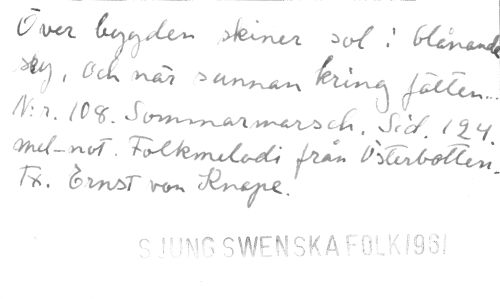 Över bygden skiner sol i blånande
sky, och när sunnan kring fälten...
N:r. 108. Sommarmarsch. Sid. 124.
mel-not. Folkmelodi från Österbotten.
Tx. Ernst von Knape.
SJUNG SWENSKA FOLK 1961